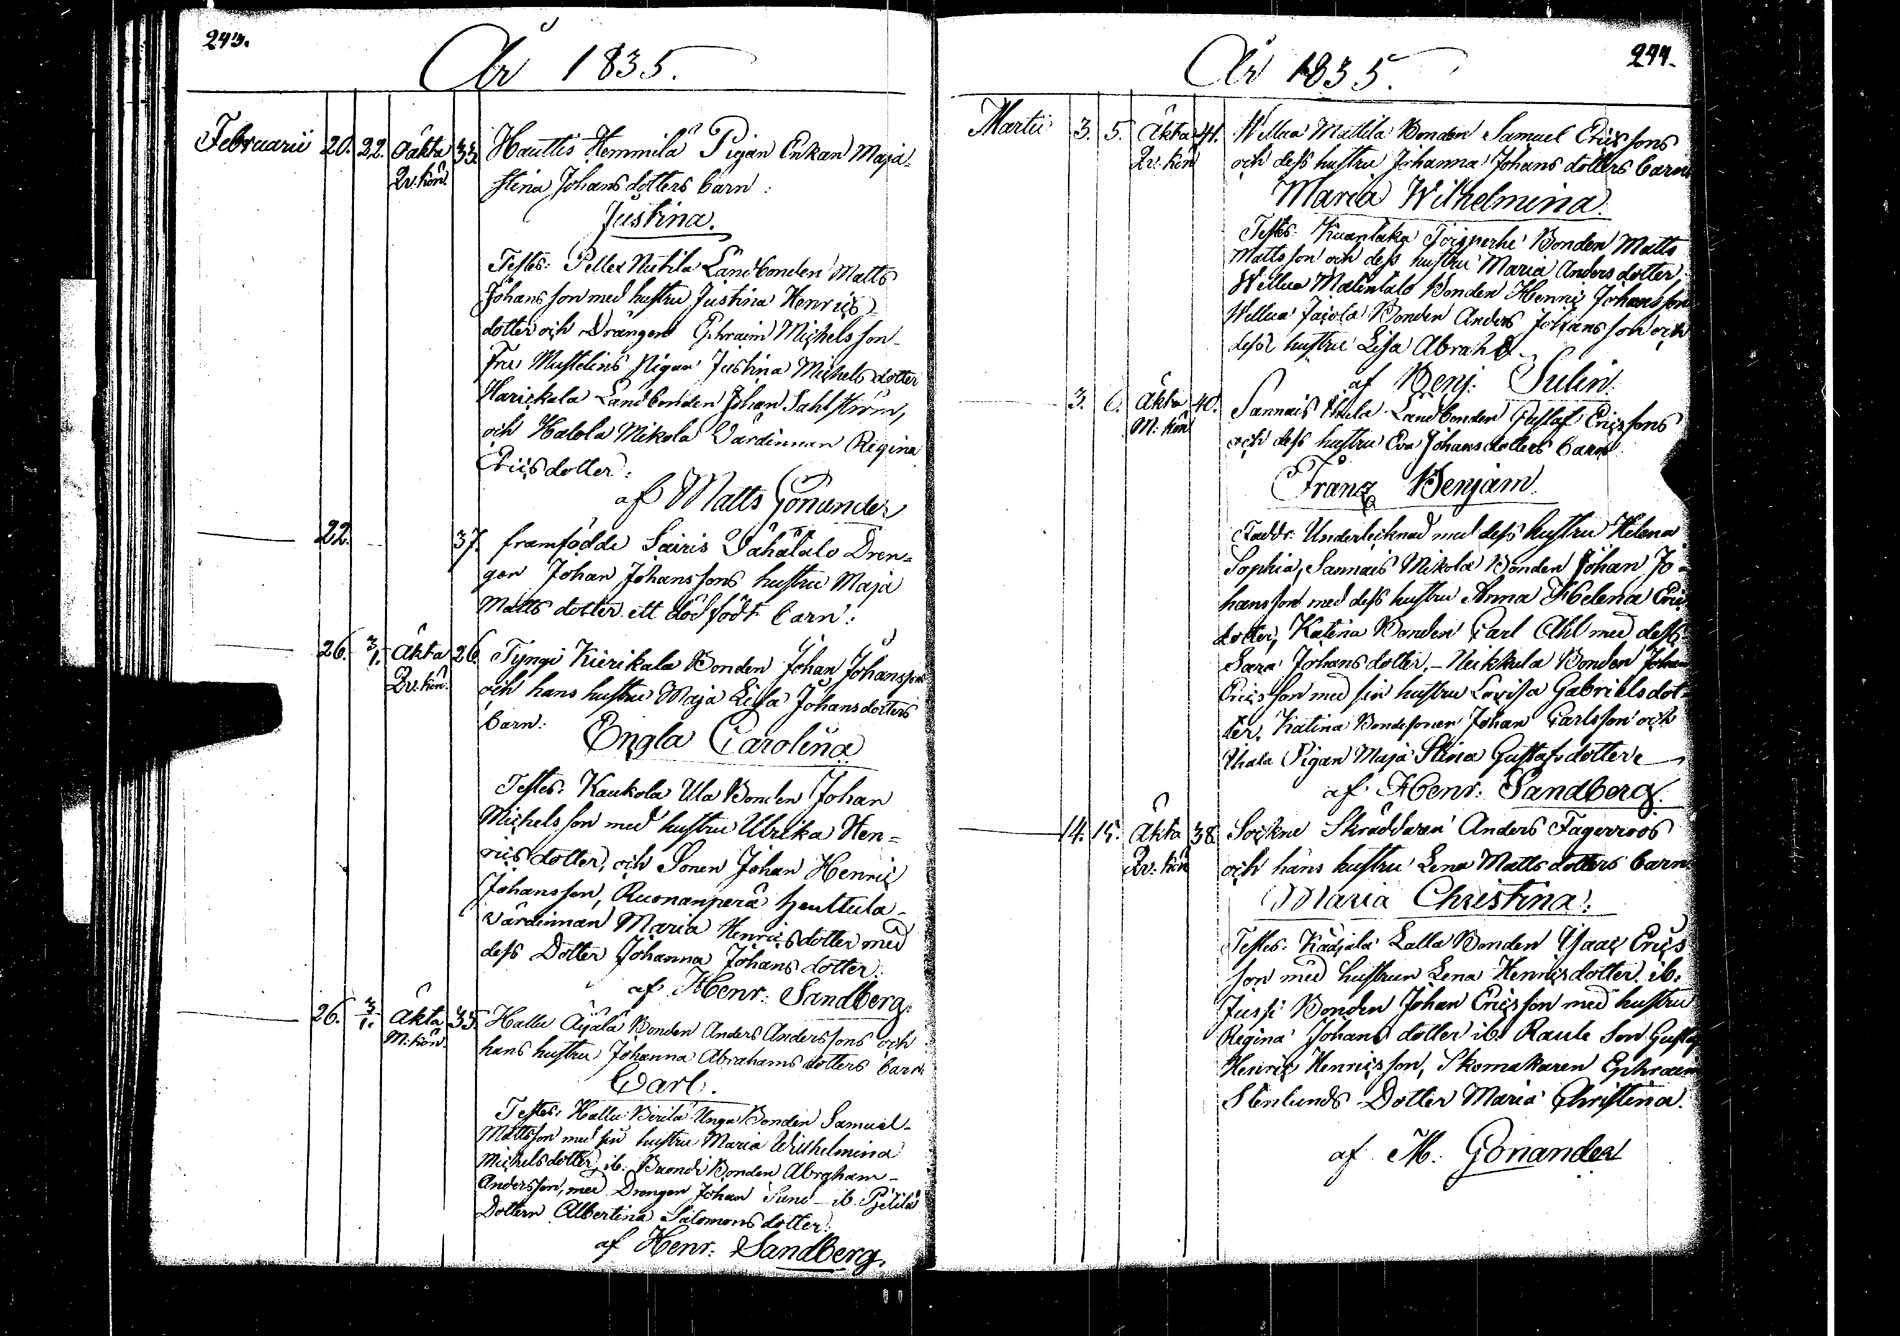 243.
År 1835.
Februarii 20. 22. Oäkta 33. Hauttis Hemmilä Pigan Enkan Maja
Qv: kön stina Johansdotters barn:
Justina.
Testes: Pelles Nutila Landbonden Matts
Johansson med hustru Justina Henrics
dotter och Drängen Ephraim Michelsson
Fru Mustelins Pigan Justina Michelsdotter
Harickala Landbonden Johan Sahlström,
och Halola Mikola Värdinnan Regina
Ericsdotter:
af Matts Gonander
22. 37. framfödde Sairis Vähätalo Dren=
gen Johan Johanssons hustru Maja
Matts dotter ett dödfödt barn:
26. 3/1. Äkta 26. Tyngi Kierikala Bonden Johan Johansson
Qv: kön. och hans hustru Maja Lisa Johansdotters
barn:
Engla Carolina
Testes: Kaukola Ula Bonden Johan
Michelsson med hustru Ulrika Hen=
ricsdotter, och Sonen Johan Henric
Johansson, Ruonanperä Henttula
värdinnan Maria Henricsdotter med
dess Dotter Johanna Johansdotter.
af Henr: Sandberg.
26. 3/1. Äkta 35. Hallu Äyälä Bonden Anders Anderssons och
M: kön. hans hustru Johanna Abrahamsdotters barn
Carl.
Testes: Hallu Unga Bonden Samuel
Mattsson med sin hustru Maria Wilhelmina
Michelsdotter, ib. Bonden Abraham
Andersson, med Drengen Johan Sund ib.
Dottern Albertina Salomonsdotter.
af Henr: Sandberg.
244.
År 1835.
Martii 3. 5. Äkta 41. Willua Mattila Bonden Samuel Ericssons
Qv: kön och dess hustru Johanna Johansdotters barn
Maria Wilhelmina.
Testes: Toisperhe Bonden Matts
Mattsson och dess hustru Maria Andersdotter.
Willua Bonden Henric Johansson
Willua Bonden Anders Johansson och
dess hustru Lisa Abrah. d.
af Benj: Sulin.
3. 6. Äkta 40. Sannais Landbonden Gustaf Ericssons
M: kön och dess hustru Eva Johansdotters barn
Franz Benjam.
Faddr. Undertecknad med dess hustru Helena
Sophia, Sannais Mikola Bonden Johan Jo=
hansson med dess hustru Anna Helena Erics
dotter, Katina Bonden Carl Ahl med dess
Sara Johansdotter, Neikkula Bonden Johan
Ericsson med sin hustru Lovisa Gabrielsdot=
ter, Katina Bondesonen Johan Carlsson och
Pigan Maja Stina Gustafsdotter
af Henr: Sandberg.
14. 15. Äkta 38. Sockne Skräddaren Anders Fagerroos
Qv: kön och hans hustru Lena Mattsdotters barn
Maria Christina.
Testes: Lalla Bonden Isaac Erics
son med hustrun Lena Henricsdotter. ib.
Jussi Bonden Johan Ericsson med hustru
Regina Johansdotter ib. Raula Son Gustaf
Henric Henricsson, Skomakaren Ephraim
Stenlunds Dotter Maria Christina.
af M. Gonander